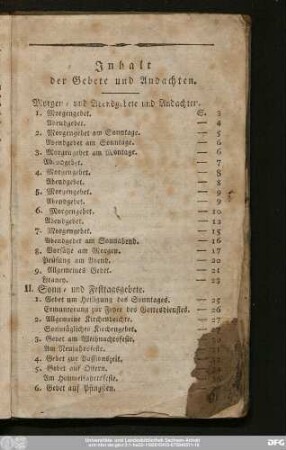 Inhalt
der Gebete und Andachten.
Morgen- und Abendgebete und Andachten.
1. Morgengebet. S. 3
Abendgebet. — 4
2. Morgengebet am Sonntage. — 5
Abendgebet am Sonntage. — 6
3. Morgengebet am Montage. — 6
Abendgebet. — 7
4. Morgengebet. — 8
Abendgebet. — 8
5. Morgengebet. — 9
Abendgebet. — 9
6. Morgengebet. — 10
Abendgebet. — 12
7. Morgengebet. — 15
Abendgebet am Sonnabend. — 16
8. Vorsätze am Morgen. — 17
Prüfung am Abend. — 20
9. Allgemeines Gebet. — 21
Litaney. — 22
II. Sonn- und Festtagsgebete.
1. Gebet um Heiligung des Sonntages. — 25
Ermunterung zur Feyer des Gottesdienstes. — 26
2. Allgemeine Kirchenbeichte. — 27
Sonntägliches Kirchengebet. — 30
3. Gebet am Weihnachtsfeste. — 33
Am Neujahrsfeste. — 34
4. Gebet zur Passionszeit. — 35
5. Gebet auf Ostern.
Am Himmelfahrtsfeste.
6. Gebet auf Pfingsten.
Universitäts- und Landesbibliothek Sachsen-Anhalt